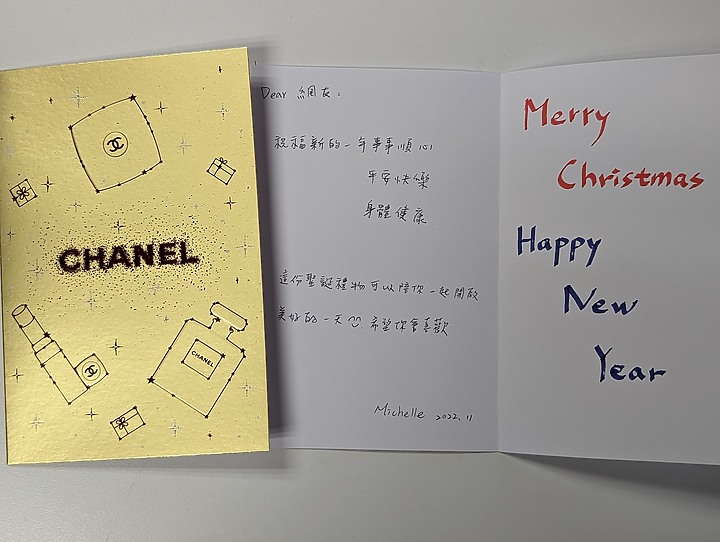 CHANEL
CHANEL
Dear 網友：
祝福新的一年事事順心
平安快樂
身體健康
這份聖誕禮物可以陪你一起開啟
美好的一天 希望你會喜歡
Michelle 2022.11
Merry
Christmas
Happy
New
Year